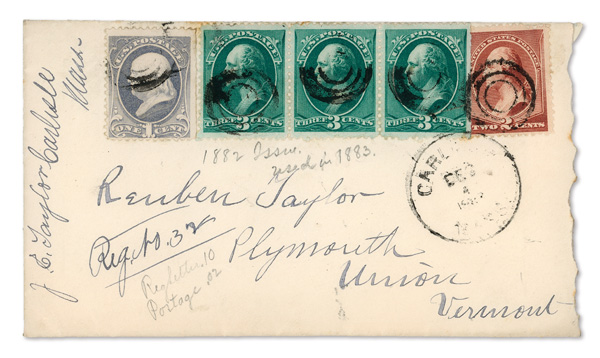 U.S. POSTAGE
ONE 1 CENT
U.S. POSTAGE
THREE 3 CENTS
U.S. POSTAGE
THREE 3 CENTS
U.S. POSTAGE
THREE 3 CENTS
UNITED STATES POSTAGE
TWO 2 CENTS
J. E. Taylor Carlisle
Mass
1882 Issue.
used in 1883.
CARL
DEC
4
Reuben Taylor
Reg. No. 32
Plymouth
Union
Vermont
Register .10
Postage .02